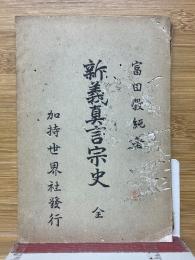 富田斅純著
新義真言宗史 全
加持世界社發行